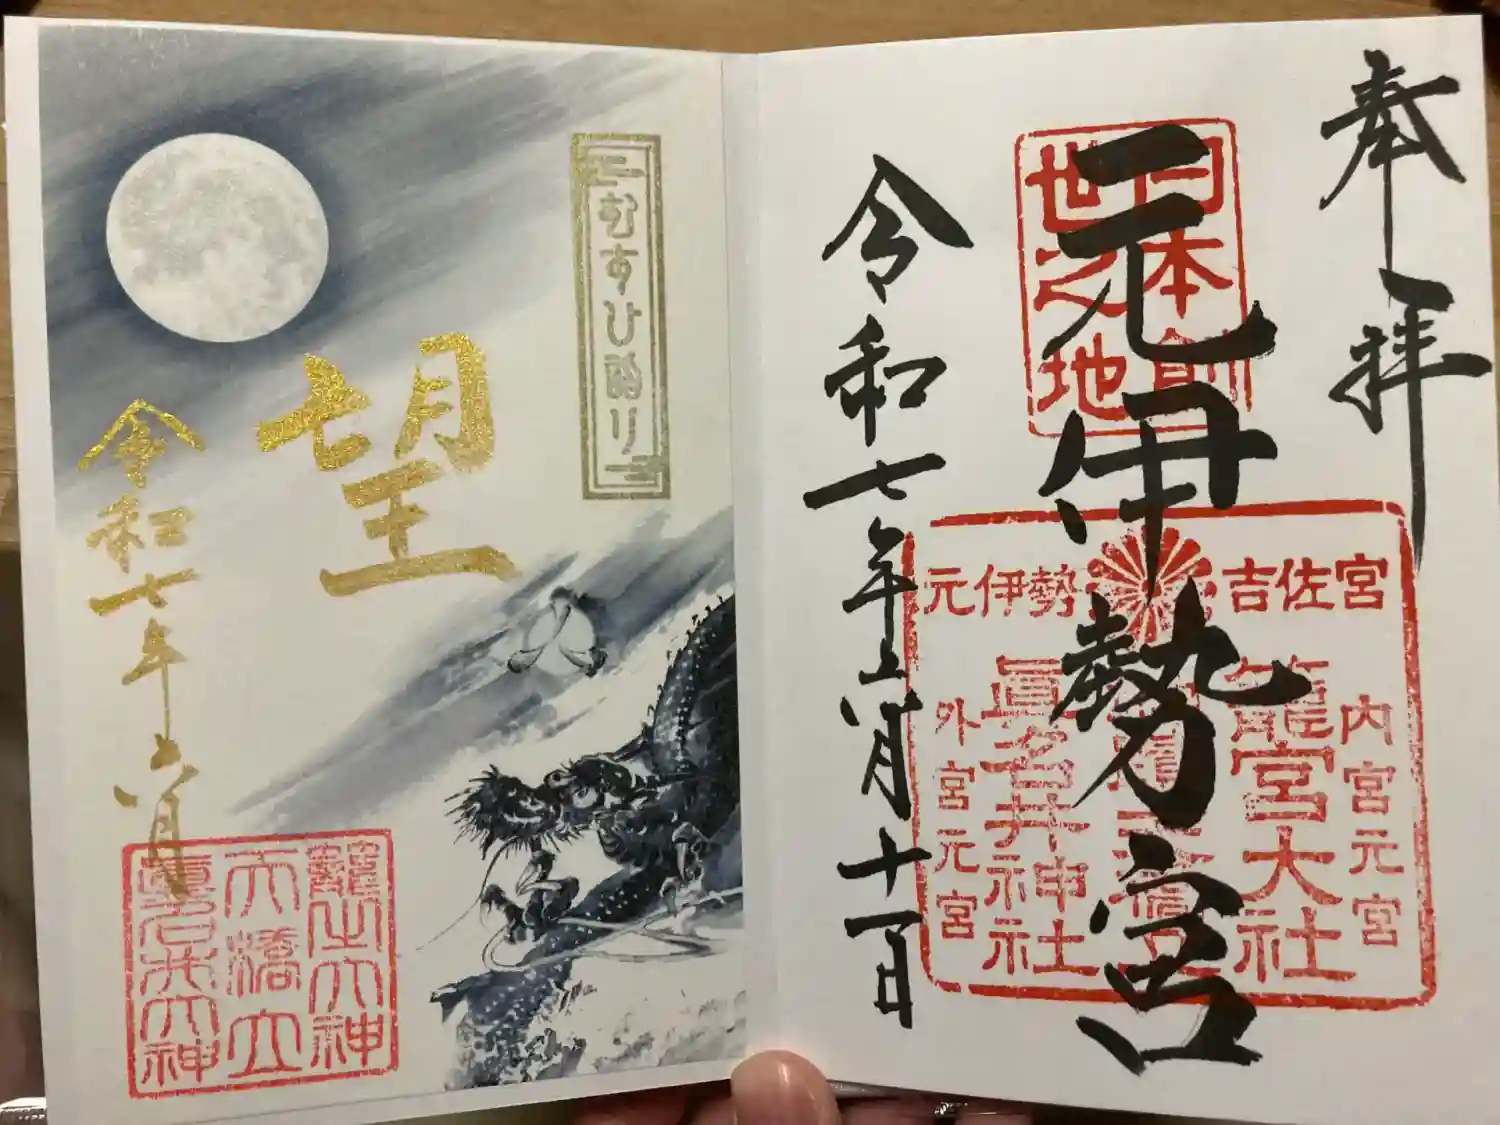 奉拝
日本創
世之地
元伊勢宮
元伊勢
吉佐宮
内宮元宮
籠宮大社
眞名井神社
外宮元宮
令和七年六月十一日
むすひ詣り
望
令和七年六月
籠之大神
天橋立
眞名井大神